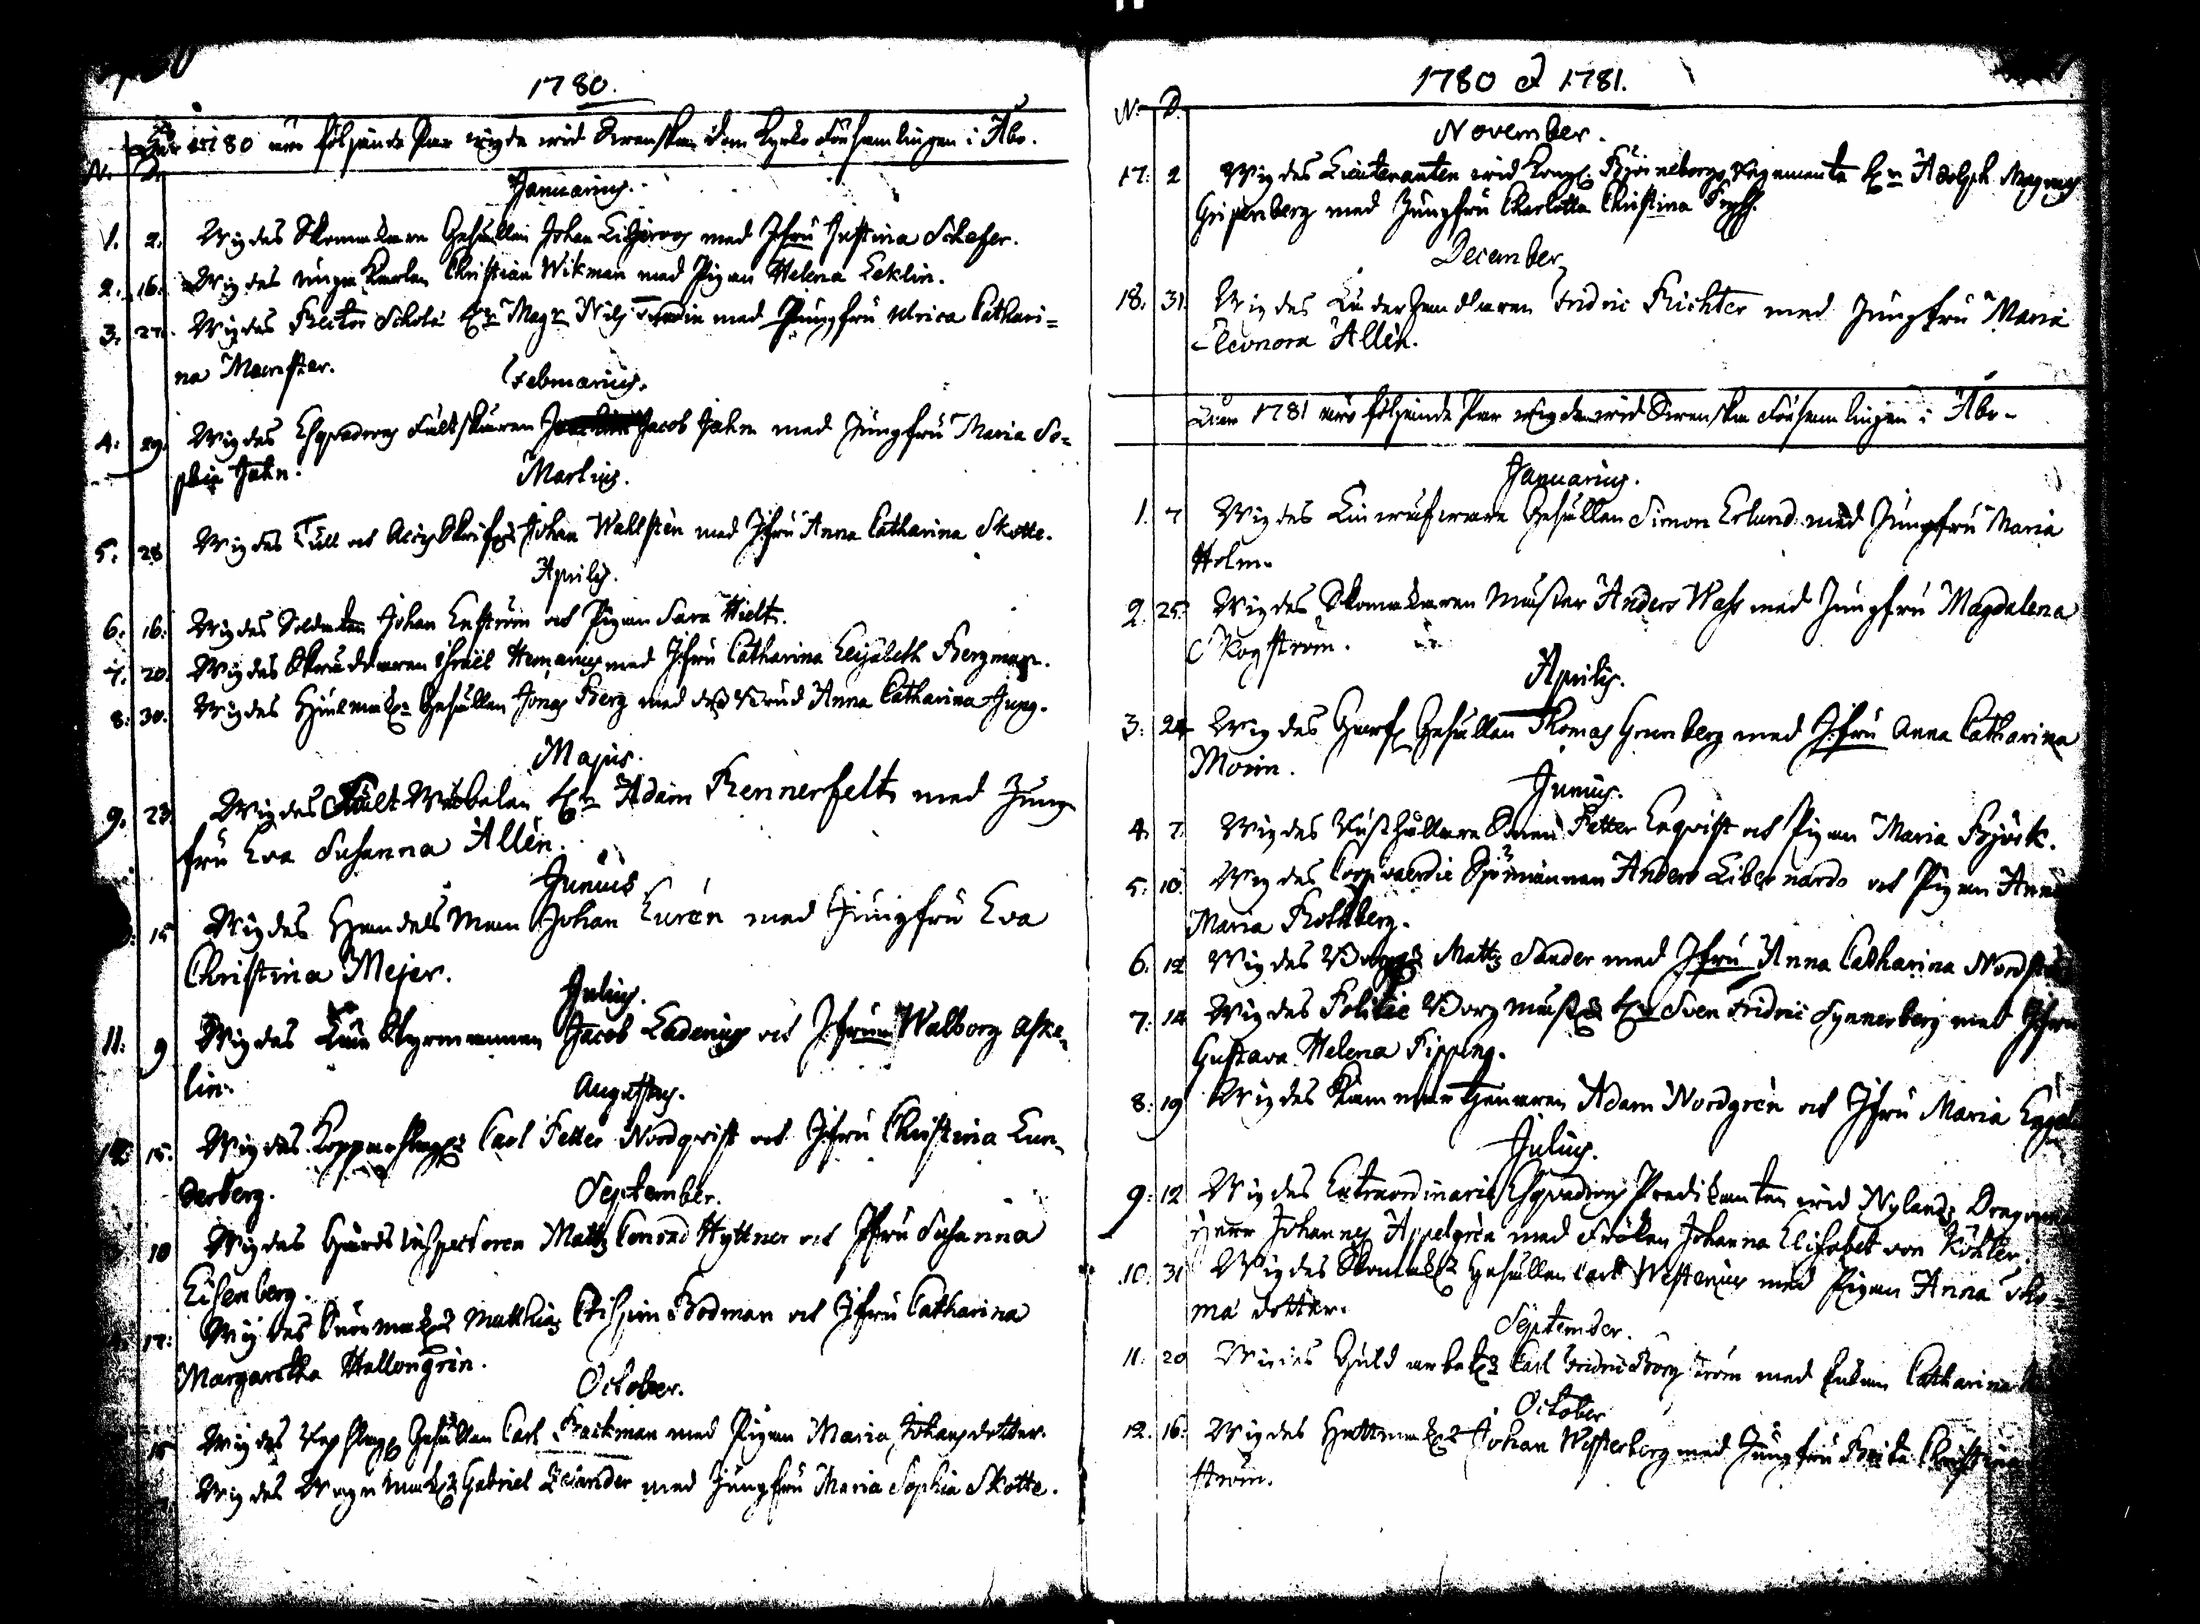 1780.
År 1780 äro följande Par wigde wid Swenska Dom Kyrko Församlingen i Åbo.
N. D.
Januarius.
1. 2. Wigdes Skomakare Gesällen Johan med Jfru Justina Schefer.
2. 16. Wigdes unga Karlen Christian Wikman med Pigan Helena Eeklin.
3. 27. Wigdes Rector Scholæ Hr Magr Nils med Jungfru Ulrica Cathari=
na Mamster.
Februarius.
4. 29. Wigdes Esquadrons Fältskären Jacob Jahn med Jungfru Maria So=
phia Jahn.
Martius.
5. 28 Wigdes Tull och Johan Wahlstén med Jfru Anna Catharina Skotte.
Aprilis.
6. 16. Wigdes Soldaten Johan Enström och Pigan Sara Hielt.
7. 20. Wigdes Skräddaren Israël Hemanus med Jfru Catharina Elisabeth Bergman.
8. 30. Wigdes Hiulmak: Gesällen Jonas Berg med Anna Catharina Jung.
Majus.
9. 23. Wigdes Fält Wäbelen Hr Adam Rennerfelt med Jung
fru Eva Susanna Allén.
Junius
15 Wigdes Handels Man Johan Eurén med Jungfru Eva
Christina Mejer.
Julius.
11. 9 Wigdes Styrmannen Jacob Ladenius och Jfrun Walborg Aske=
lin.
Augustus.
15. Wigdes Kopparslag: Carl Petter Nordqvist och Jfru Christina Lun=
derberg.
September.
10 Wigdes Gårds Inspectoren Matts Conrad Hyttner och Jfru Susanna
Eisenberg.
17. Wigdes Matthias Bodman och Jfru Catharina
Margaretha Hallongrén.
October.
15 Wigdes Gesällen Carl Backman med Pigan Maria Johansdotter.
Wigdes Wagnmak: Gabriel med Jungfru Maria Sophia Skotte.
1780 & 1781.
N. D.
November.
17. 2 Wigdes Lieutenanten wid Kongl. Björneborgs Regemente Hr Adolph Magnus
Gripenberg med Jungfru Charlotta Christina
December
18. 31. Wigdes Läderhandlaren Fridric Richter med Jungfru Maria
Eleonora Allén.
Åhr 1781 äro följande Par wigde wid Swenska Församlingen i Åbo.
Januarius.
1. 7 Wigdes Linwäfware Gesällen Simon Erlund med Jungfru Maria
Holm.
2. 25. Wigdes Skomakaren Mäster Anders Wass med Jungfru Magdalena
Skogström.
Aprilis.
3. 24 Wigdes Garf: Gesällen Thomas Grunberg med Jfru Anna Catharina
Morin.
Junius.
4. 7. Wigdes Rusthållare Sonen Petter Enqvist och Pigan Maria Björk.
5. 10. Wigdes Sjömannen Anders Libernardo och Pigan Anna
Maria Rothberg.
6. 12 Wigdes Matts Sander med Jfru Anna Catharina
7. 14 Wigdes Politie Borgmäst: Hr Sven Fridric Synnerberg med Jfru
Gustava Helena Pipping.
8. 19 Wigdes Kammartjenaren Adam Nordgrén och Jfru Maria
Julius.
9. 12 Wigdes Extraordinarie Esquadrons Predikanten wid Nylands
Herr Johannes Appelgrén med Fröken Johanna Elisabet von Köhler.
10. 31 Wigdes Skomak: Gesällen Carl Westenius med Pigan Anna
ma dotter.
September.
11. 20 Wigdes Guldarbet: Carl Fridric Borgström med Enkan Catharina
October
12. 16. Wigdes Hattmak: Johan Westerberg med Jungfru Brita Christina
ström.